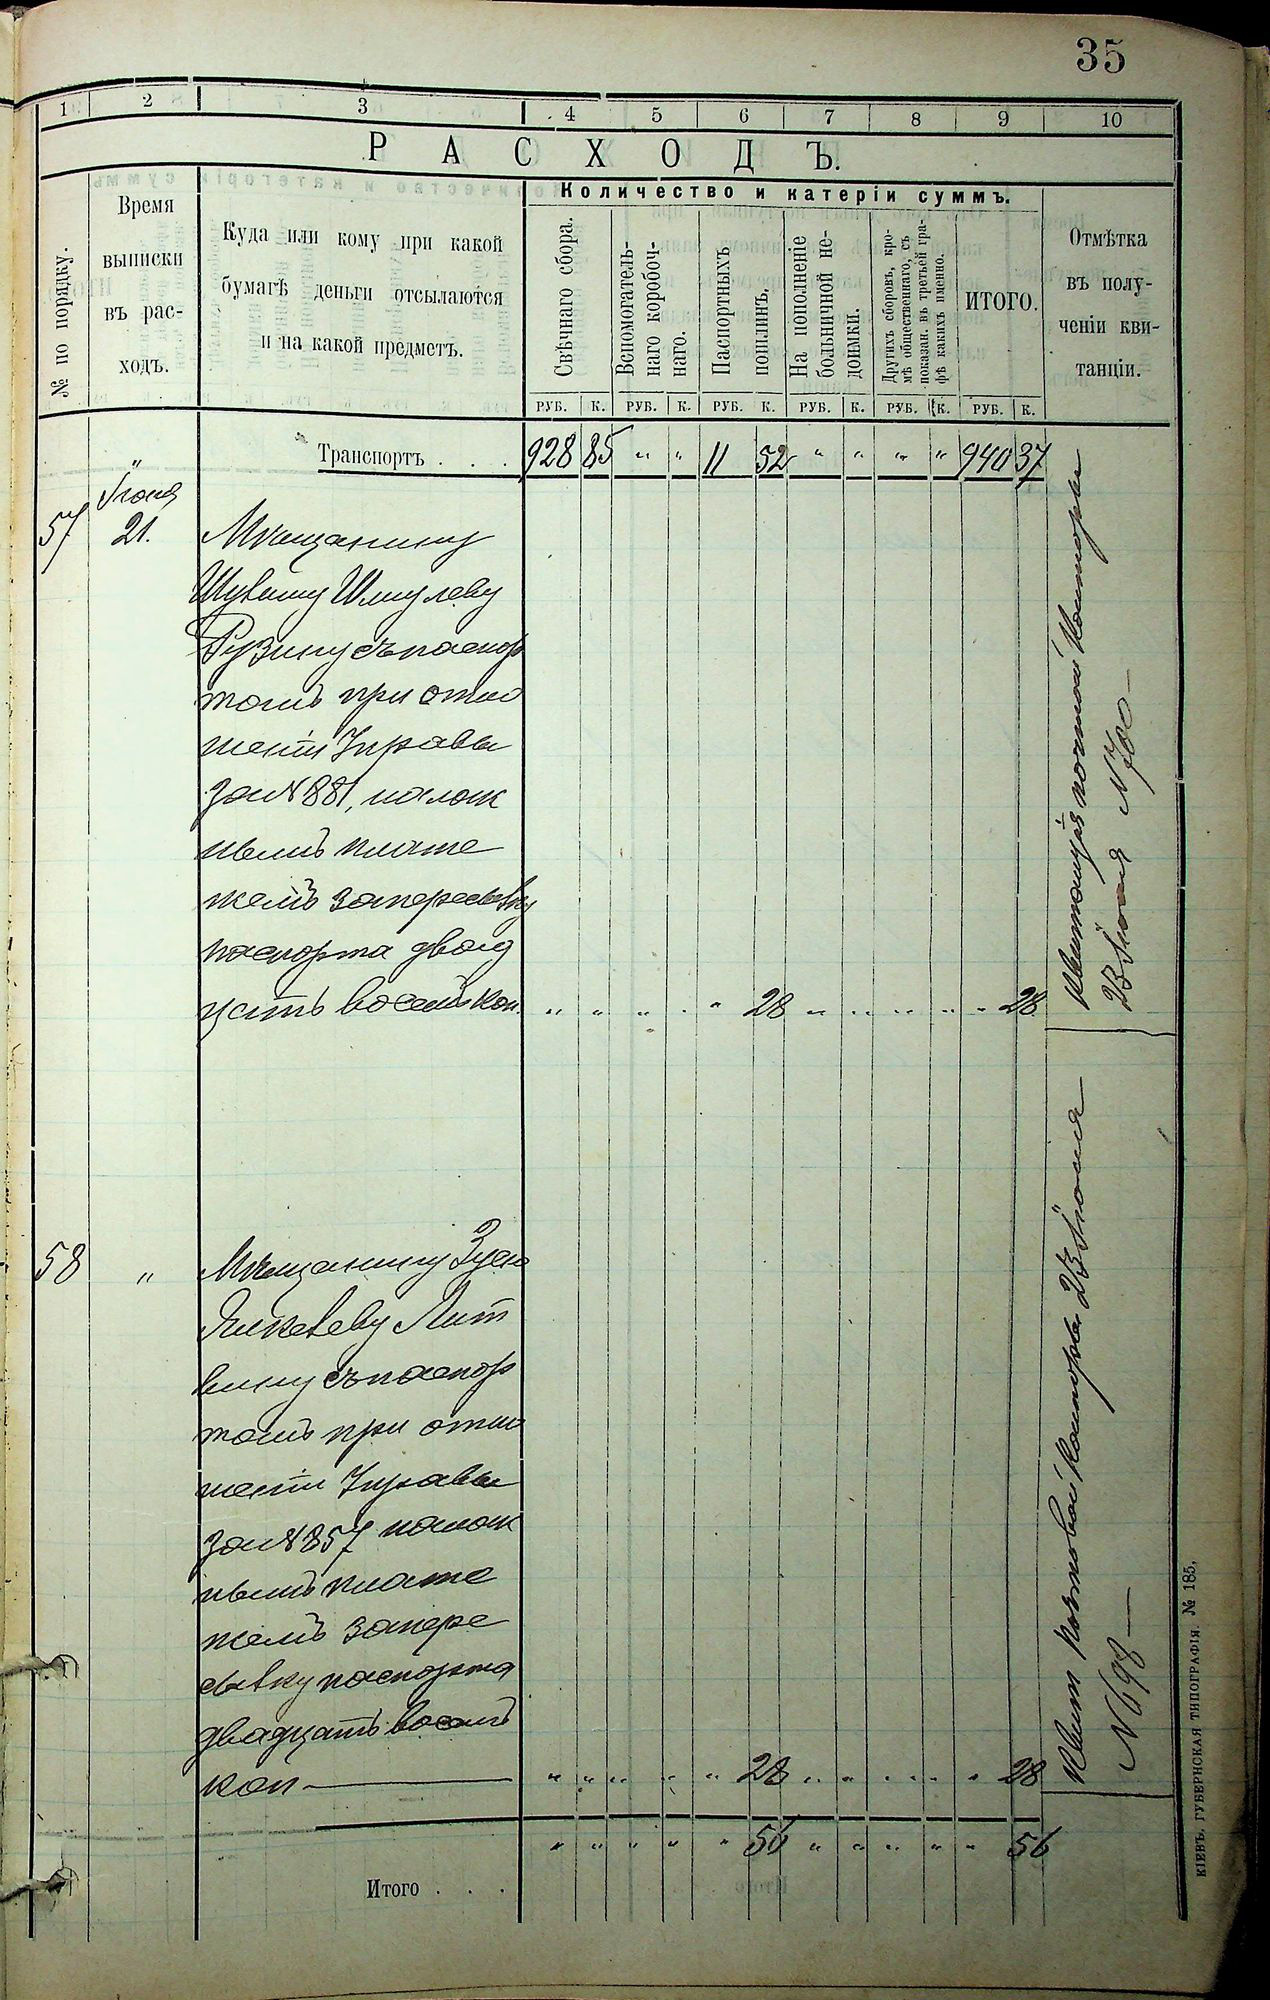 35
1 2 3 4 5 6 7 8 9 10
РАСХОДЪ.
№ по порядку.
Время
выписки
въ рас-
ходъ.
Куда или кому при какой
бумагѣ деньги отсылаются
и на какой предметъ.
Количество и катерiи суммъ.
Свѣчнаго сбора.
Вспомогатель-
наго коробоч-
наго.
Паспортныхъ
пошлинъ.
На пополненiе
больничной не-
доимки.
Другихъ сборовъ, кро-
мѣ общественнаго, съ
показан. въ третьей гра-
фѣ какихъ именно.
ИТОГО.
Отмѣтка
въ полу-
ченiи кви-
танцiи.
РУБ. К. РУБ. К. РУБ. К. РУБ. К. РУБ. К. РУБ. К.
Транспортъ . . . 928 85 " " 11 52 " " " " 940 37
"
57 21. Мѣщанину
Шмулеву
Рузину съ паспор
томъ при отно
шенiи Управы
за № 881, налож
нымъ плате
жемъ за пересылку
паспорта двад
цать восемь коп. " " " " " 28 " " " " " 28
Квитанцiя почтовой Конторы
23 Iюня № 700
58 " Мѣщанину
Лит
вину съ паспор
томъ при отно
шенiи Управы
за № 857 налож
нымъ плате
жемъ за пере
сылку паспорта
двадцать восемь
коп — " " " " " 28 " " " " " 28
Квит почтовой Конторы 23 Iюня
№ 698 —
" " " " " 56 " " " " " 56
Итого . . .
КIЕВЪ, ГУБЕРНСКАЯ ТИПОГРАФIЯ. № 185.